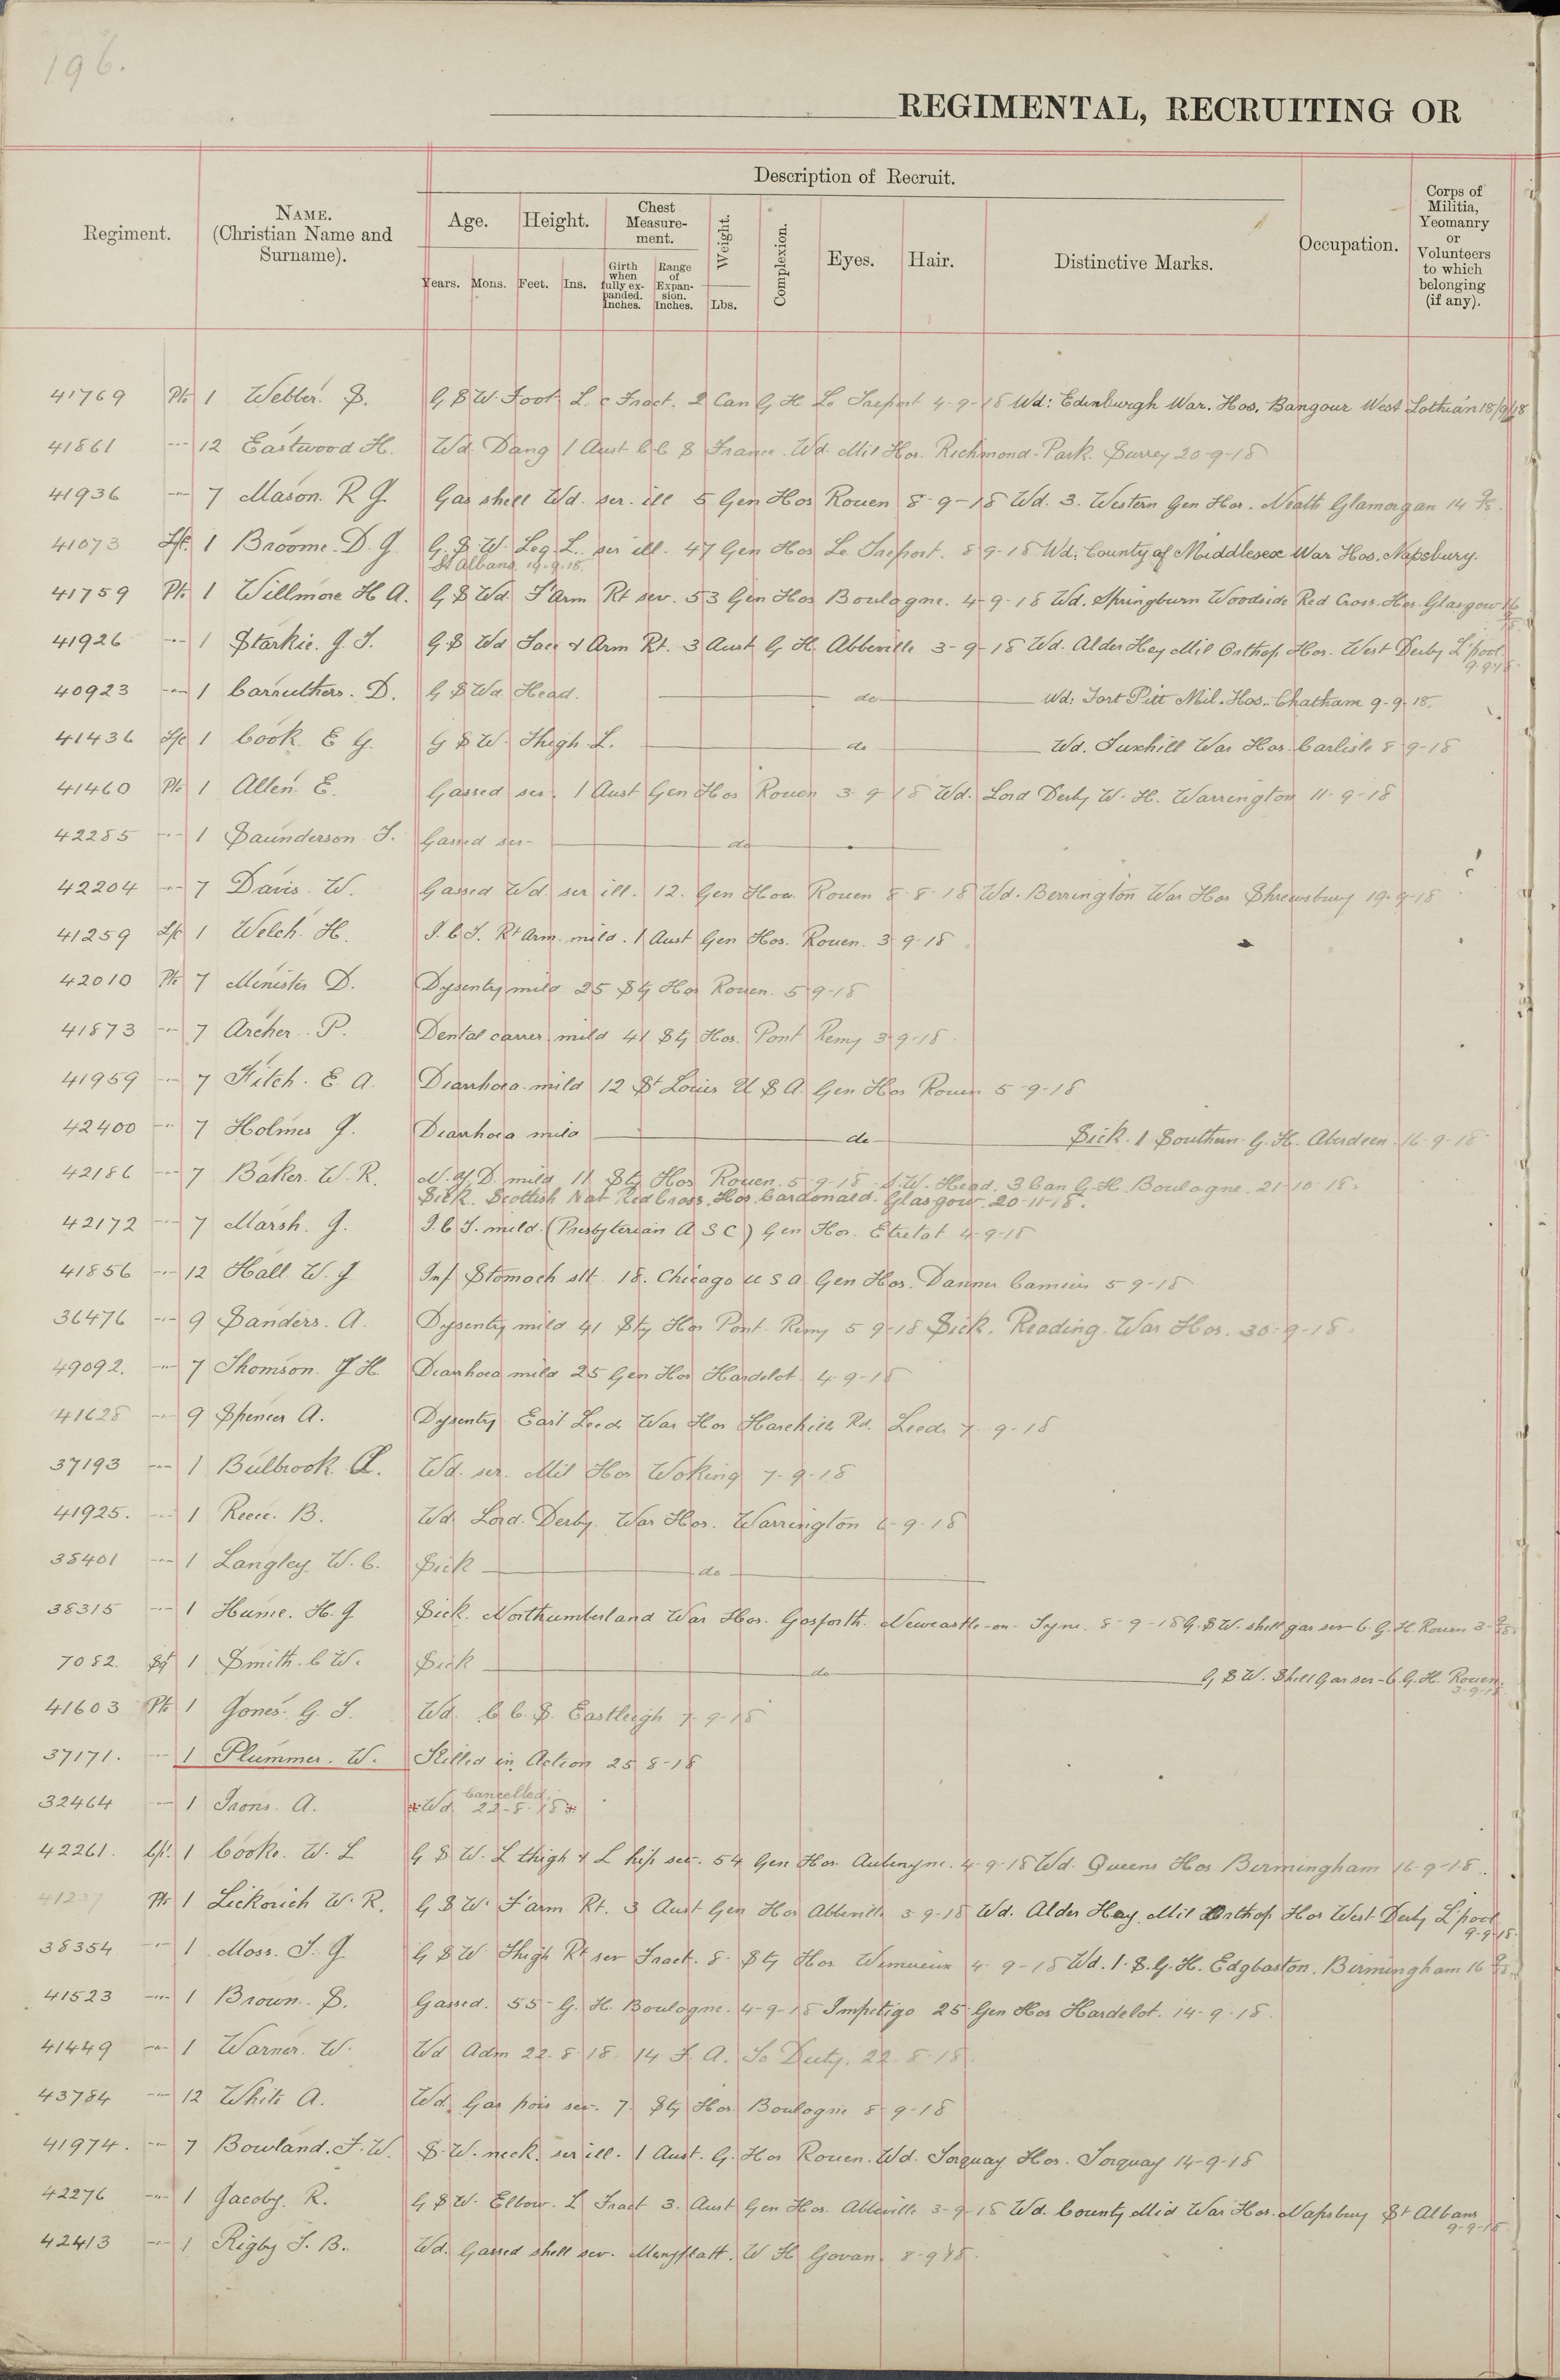 196.
REGIMENTAL, RECRUITING OR
Regiment.
NAME.
(Christian Name and
Surname).
Description of Recruit.
Age.
Height.
Chest
Measure-
ment.
Weight.
Complexion.
Eyes.
Hair.
Distinctive Marks.
Occupation.
Corps of
Militia,
Yeomanry
or
Volunteers
to which
belonging
(if any).
Years. Mons. Feet. Ins.
Girth
when
fully ex-
panded.
Inches.
Range
of
Expan-
sion.
Inches.
Lbs.
41769 Pte 1 Webber. S. G S W. Foot L. c Fract. 2 Can G H Le Treport 4-9-18 Wd: Edinburgh War. Hos. Bangour West Lothian 18/9/18
41861 -"- 12 Eastwood H. Wd. Dang 1 Aust C C S France. Wd. Mil Hos. Richmond Park. Surrey 20-9-18
41936 -"- 7 Mason. R G. Gas shell Wd. ser. ill 5 Gen Hos Rouen 8-9-18 Wd. 3. Western Gen Hos. Neath Glamorgan 14 9/18.
41073 L/C. 1 Broome. D. G G. S. W. Leg. L. ser ill. 47 Gen Hos Le Treport. 8 9-18 Wd: County of Middlesex War Hos. Napsbury.
St Albans. 19.9.18.
41759 Pte 1 Willmore H A. G S Wd. F'arm Rt sev. 53 Gen Hos Boulogne. 4-9-18 Wd. Springburn Woodside Red Cross. Hos. Glasgow 16
41926 -"- 1 Starkie. J. T. G S Wd Face & Arm Rt. 3 Aust G. H. Abbeville 3-9-18 Wd. Alder Hey Mil Orthop Hos. West Derby L'pool
9-9-18
40923 -"- 1 Carruthers. D. G S Wd. Head. do Wd: Fort Pitt Mil. Hos. Chatham 9-9-18.
41436 L/C 1 Cook E G. G S W. Thigh L. do Wd. Fusehill War Hos. Carlisle 8-9-18
41460 Pte 1 Allen E. Gassed sev. 1 Aust Gen Hos Rouen 3-9-18 Wd. Lord Derby W. H. Warrington 11-9-18
42285 -"- 1 Saunderson T. Gassed sev- do
42204 -"- 7 Davis. W. Gassed Wd. ser ill. 12. Gen Hos. Rouen 8-8-18 Wd. Berrington War Hos Shrewsbury 19-9-18
41259 L/C 1 Welch. H. I. C T. Rt Arm. mild. 1 Aust Gen Hos. Rouen. 3-9-18
42010 Pte 7 Minister D. Dysentry mild 25 Sty Hos Rouen. 5-9-18
41873 -"- 7 Archer. P. Dental carres mild 41 Sty Hos. Pont Remy 3-9-18
41959 -"- 7 Fitch. E. A. Diarrhoea mild 12 St Louis U S A. Gen Hos Rouen 5-9-18
42400 -"- 7 Holmes J. Diarrhoea mild do Sick. 1 Southern G. H. Aberdeen 16-9-18
42186 -"- 7 Baker. W. R. N. Y. D. mild 11 Sty Hos Rouen. 5-9-18. S. W. Head. 3 Can G. H. Boulogne. 21-10-18.
Sick. Scottish Nat. Red Cross. Hos. Cardonald. Glasgow. 20-11-18.
42172 -"- 7 Marsh. J. I. C T. mild. (Presbyterian A S C) Gen Hos. Etretat 4-9-18
41856 -"- 12 Hall W. J Inf Stomach slt. 18. Chicago U S A Gen Hos. Dannes Camiers 5-9-18
36476 -"- 9 Sanders. A. Dysentry mild 41 Sty Hos Pont. Remy 5 9-18 Sick. Reading. War Hos. 30-9-18.
49092. -"- 7 Thomson J H. Diarrhoea mild 25 Gen Hos Hardelot 4-9-18
41628 -"- 9 Spencer A. Dysentry East Leeds War Hos Harehills Rd. Leeds 7-9-18
37193 -"- 1 Bulbrook A. Wd. ser. Mil Hos Woking 7-9-18
41925. -"- 1 Reece. B. Wd. Lord. Derby. War Hos. Warrington 6-9-18
38401 -"- 1 Langley W. C. Sick do
38315 -"- 1 Hume. H. J Sick. Northumberland War Hos. Gosforth. Newcastle-on-Tyne. 8-9-18 G. S W. shell gas sev 6. G. H. Rouen 3-9/18
7082. Sgt 1 Smith. C W. Sick do G S W. Shell Gas ser-6 G. H. Rouen.
3-9-18
41603 Pte 1 Jones. G. T. Wd. C C. S. Eastleigh 7-9-18
37171. -"- 1 Plummer. W. Killed in Action 25-8-18
32464 -"- 1 Irons. A. *Wd. 22-8-18* Cancelled.
42261. Cpl. 1 Cooke. W. L G S W. L thigh & L hip sev. 54 Gen Hos. Aubengue. 4-9-18 Wd. Queens Hos Birmingham 16-9-18.
41237 Pte 1 Lickorich W. R. G S W. F'arm Rt. 3 Aust Gen Hos Abbeville 3-9-18 Wd. Alder Hey. Mil Orthop Hos West Derby L'pool
9-9-18.
38354 -"- 1 Moss. T. G. G S W Thigh Rt sev Fract. 8. Sty Hos Wimereux 4-9-18 Wd. 1. S. G. H. Edgbaston. Birmingham 16 9/18.
41523 -"- 1 Brown. S. Gassed. 55 G. H. Boulogne. 4-9-18 Impetigo 25 Gen Hos Hardelot. 14-9-18.
41449 -"- 1 Warner. W. Wd Adm 22-8-18. 14 F. A. To Duty. 22-8-18.
43784 -"- 12 White A. Wd. Gas pois sev. 7. Sty Hos Boulogne 8-9-18
41974. -"- 7 Bowland. F. W. S. W. neck. ser ill. 1 Aust. G. Hos Rouen. Wd. Torquay Hos. Torquay 14-9-18
42276 -"- 1 Jacoby. R. G S W. Elbow. L Fract 3. Aust Gen Hos. Abbeville 3-9-18 Wd. County Mid War Hos. Napsbury St Albans
9-9-18
42413 -"- 1 Rigby T. B. Wd. Gassed shell sev. Merryflatt. W H Govan. 8-9-18.